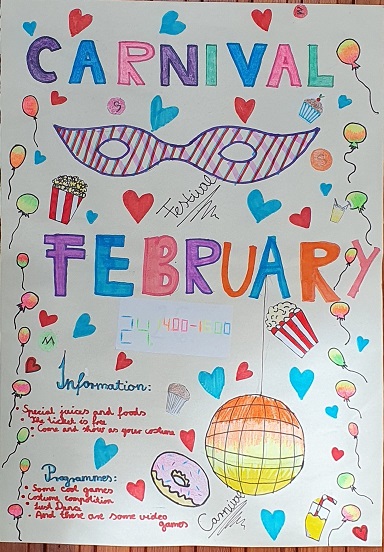 CARNIVAL
Festival
FEBRUARY
1400-1600
M
Information:
Special juices and foods
The ticket is free
Come and show us your costume
Programmes:
Some cool games
Costume competition
Just Dance
And there are some video
games
Carnival